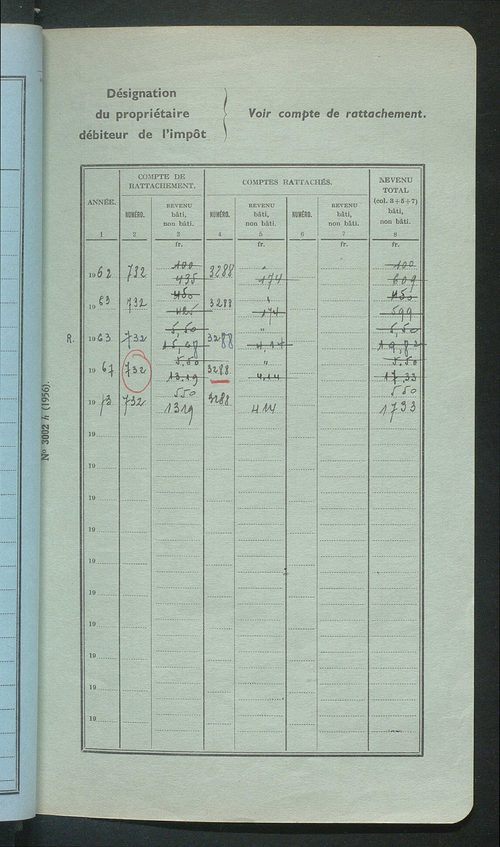 Désignation
du propriétaire
débiteur de l'impôt
Voir compte de rattachement.
ANNÉE. COMPTE DE RATTACHEMENT. COMPTES RATTACHÉS. REVENU TOTAL (col. 3+5+7) bâti, non bâti.
NUMÉRO. REVENU bâti, non bâti. NUMÉRO. REVENU bâti, non bâti. NUMÉRO. REVENU bâti, non bâti.
1 2 3 4 5 6 7 8
fr. fr. fr. fr.
100 " 100
1962 732 435 3288 174 609
450 " 450
1963 732 425 3288 174 599
5,50 " 5,50
R. 1963 732 3288
5.50 " 5.50
1967 732 13.19 3288 4.14 17.33
550 550
1973 732 1319 3288 414 1733
19
19
19
19
19
19
19
19
19
19
N° 3002 h (1956).